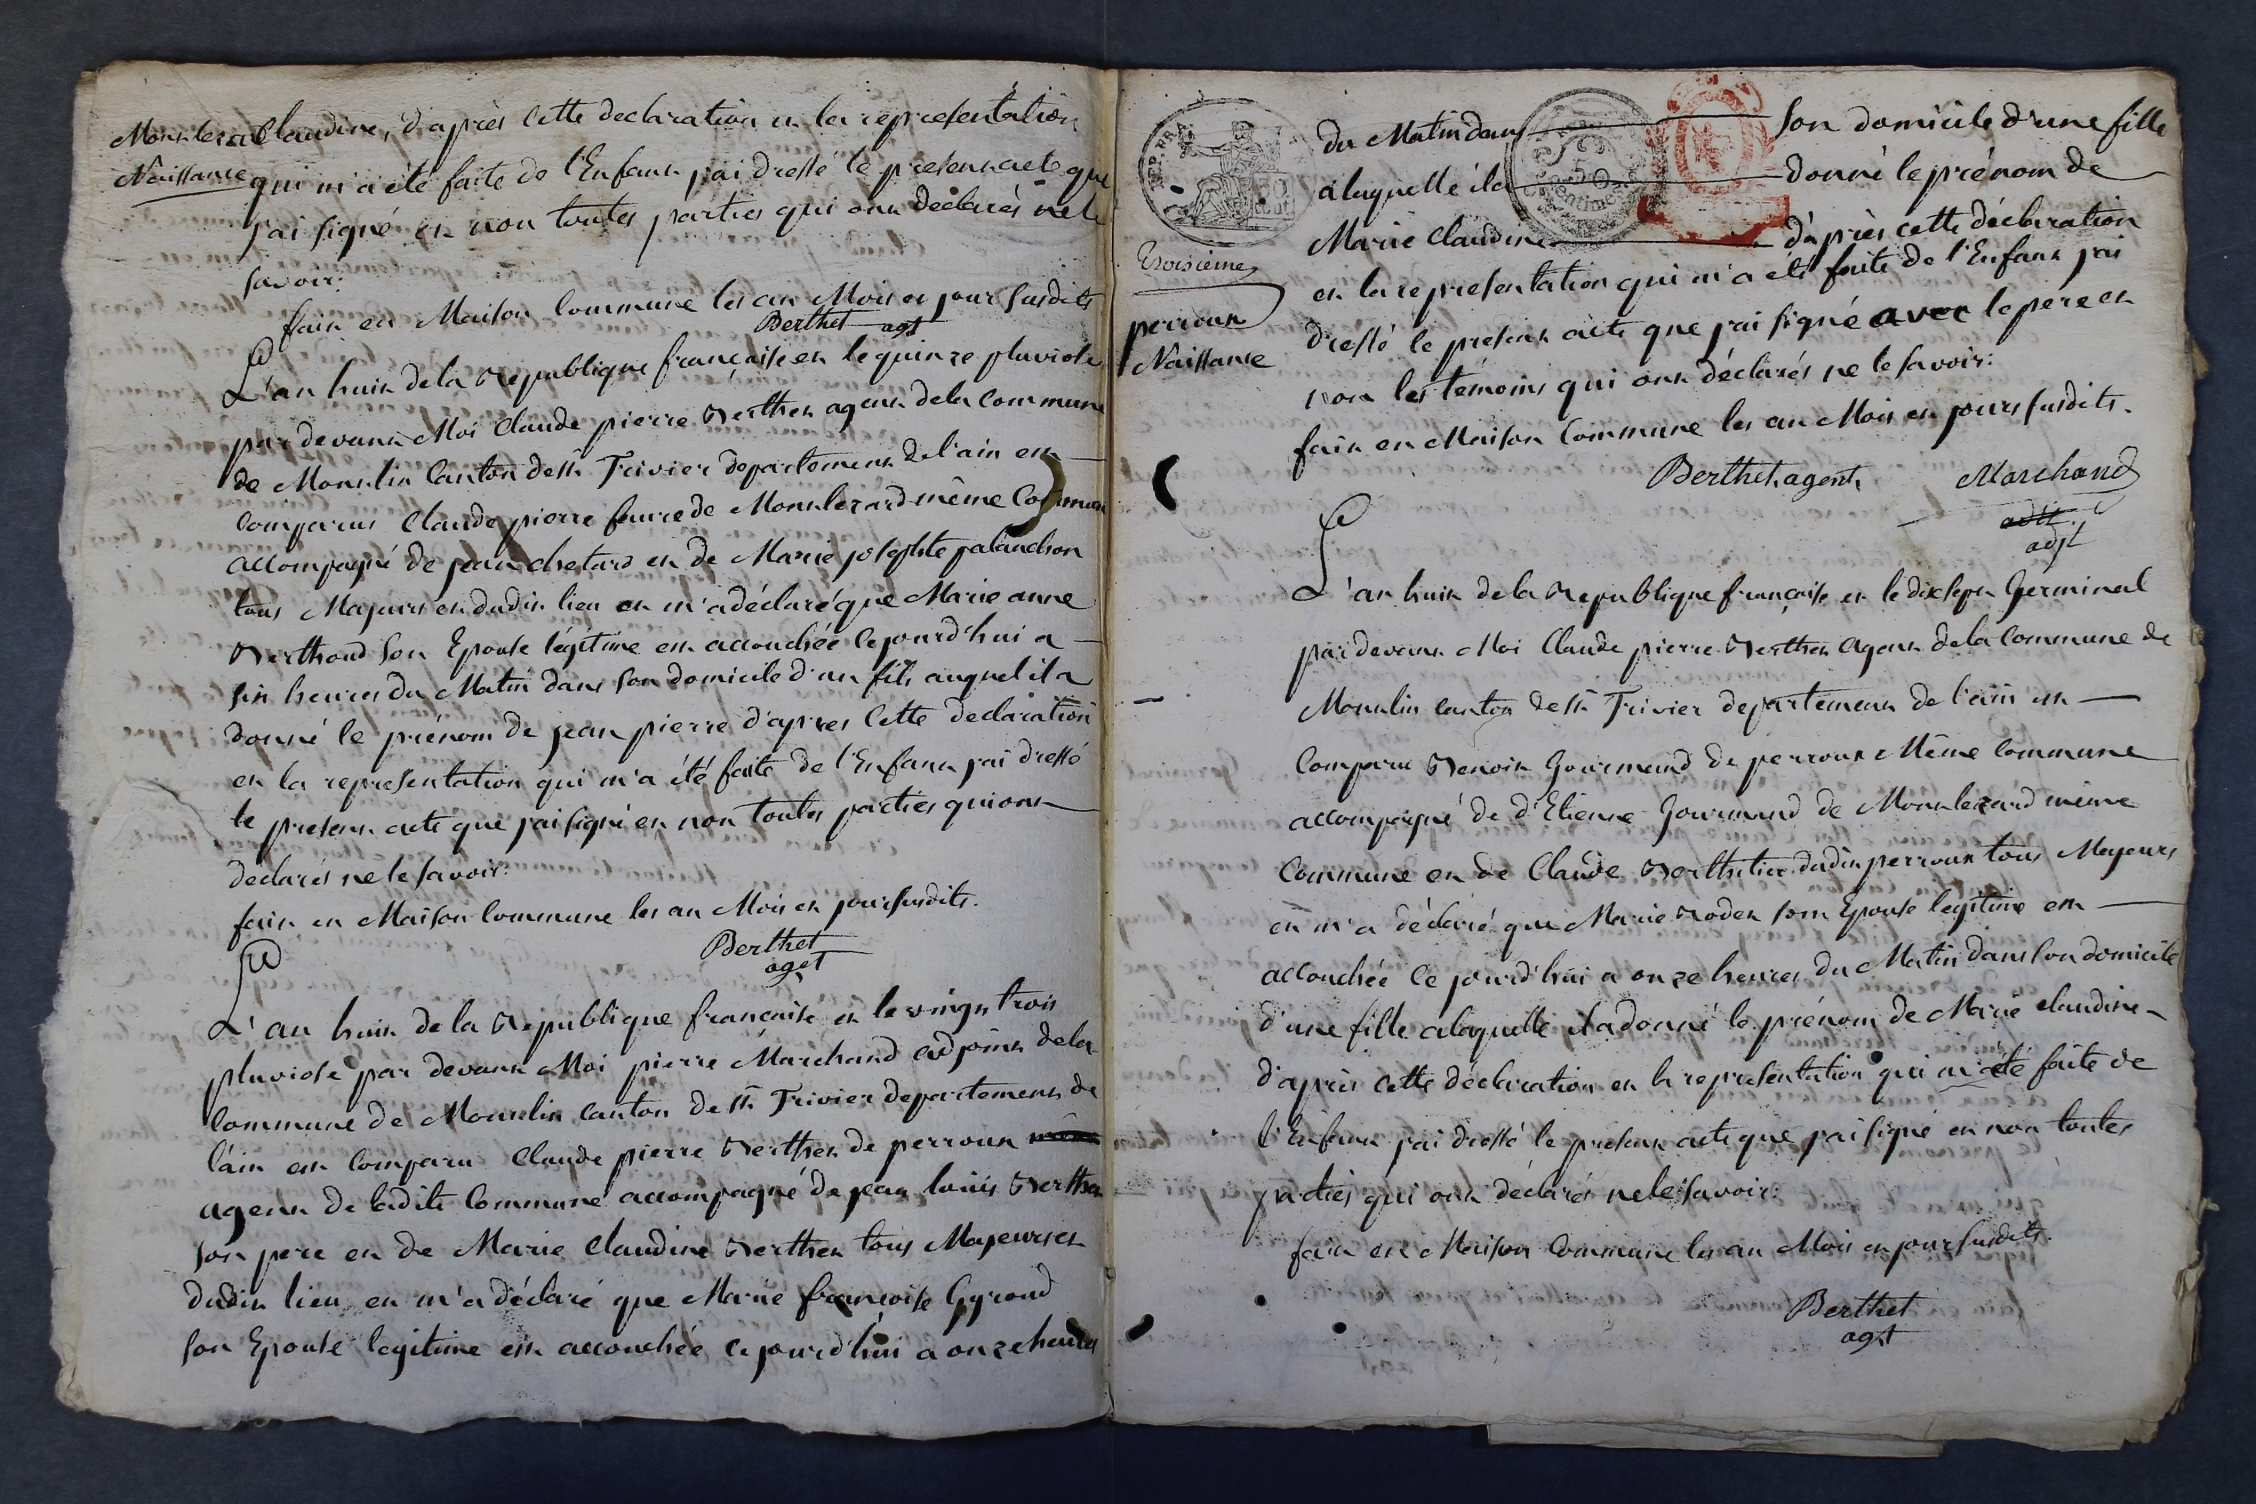 Montlezard
Naissance
Claudine, d'après cette declaration et la representation
qui m'a été faite de l'Enfant j'ai dressé le present acte que
j'ai signé et non toutes parties qui ont déclarés ne le
savoir:
fait en Maison Commune les an Mois et jour susdits
Berthet agt
L'an huit de la Republique française et le quinze pluviose
par devant Moi Claude pierre Berthet agent de la commune
de Monulin Canton de st Trivier departement de l'ain est
Comparus Claude pierre faure de Montlezard même Commune
accompagné de jean chetard et de Marie josephte palanchon
tous Majeurs et dudit lieu et m'a déclaré que Marie anne
Berthoud son Epouse légitime est accouchée cejourd'hui a
six heures du Matin dans son domicile d'un fils auquel il a
donné le prénom de jean pierre d'apres cette declaration
et la representation qui m'a été faite de l'Enfant j'ai dressé
le present acte que j'ai signé et non toutes parties qui ont
déclarés ne le savoir:
fait en Maison Commune les an Mois et jour susdits.
Berthet
aget
L'an huit de la Republique francaise et le vingt trois
pluviose par devant Moi pierre Marchand adjoint de la
Commune de Monulin canton de st Trivier departement de
l'ain est Comparu Claude pierre Berthet de perroux
agent de ladite Commune accompagné de jean louis Berthet
son pere et de Marie Claudine Berthet tous Majeurs et
dudit lieu et m'a déclaré que Marie françoise Gyroud
son Epouse legitime est accouchée cejourd'hui a onze heures
REP. FRA.
50
Centimes
Troisieme
perroux
Naissance
du Matin dans son domicile d'une fille
a laquelle il a donné le prénom de
Marie Claudine d'après cette déclaration
et la representation qui m'a été faite de l'Enfant j'ai
dressé le present acte que j'ai signé avec le père et
non les témoins qui ont déclarés ne le savoir:
fait en Maison Commune les an Mois et jours susdits.
Berthet agent Marchand
adjt
adjt
L'an huit de la Republique française et le dix sept Germinal
par devant Moi Claude pierre Berthet agent de la Commune de
Monulin canton de st Trivier departement de l'ain est
Comparu Benoit Gourmand de perroux Même Commune
accompagné de d'Etienne Gourmand de Montlezard même
Commune et de Claude Berthelier dudit perroux tous Majeurs
et m'a déclaré que Marie Bodet son Epouse legitime est
accouchée ce jourd'hui a onze heures du Matin dans son domicile
d'une fille a laquelle il a donné le prénom de Marie Claudine
d'après cette déclaration et la representation qui m'a été faite de
l'Enfant j'ai dressé le present acte que j'ai signé et non toutes
parties qui ont déclarés ne le savoir:
fait en Maison Commune les an Mois et jour susdits.
Berthet
agt